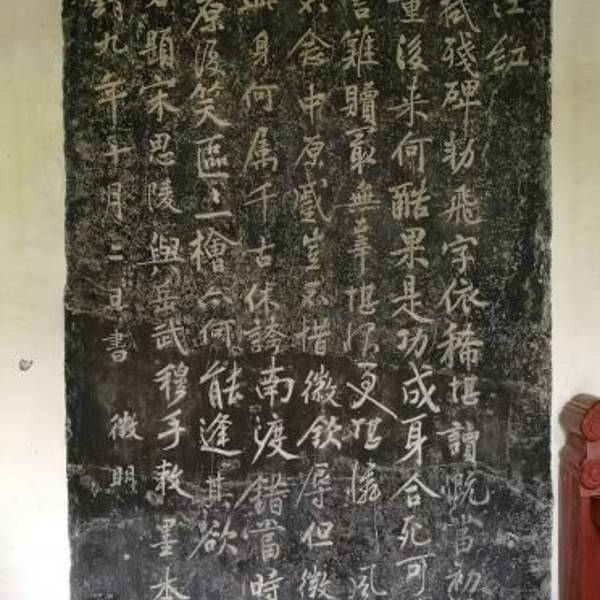 江紅
拭殘碑勑飛字依稀堪讀慨當初
重後来何酷果是功成身合死可
言難贖最無辜堪恨更堪憐風
不念中原蹙豈不惜徽欽辱但徽
此身何属千古休誇南渡錯當時
原復笑區〻檜亦何能逢其欲
右題宋思陵與岳武穆手敕墨本
靖九年十月二日書 徵明